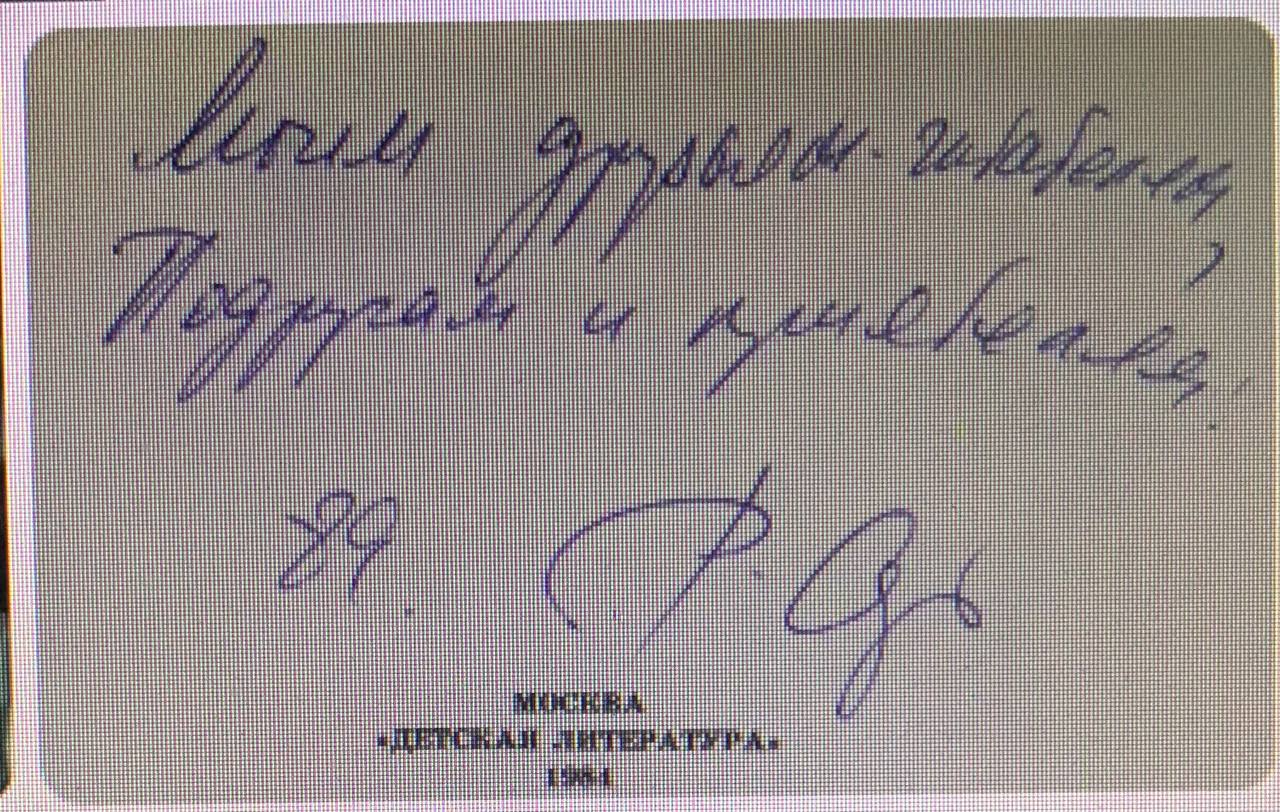 Моим друзьям-читателям,
Подругам и приятелям!
Р. Сеф
МОСКВА
«ДЕТСКАЯ ЛИТЕРАТУРА»
1984